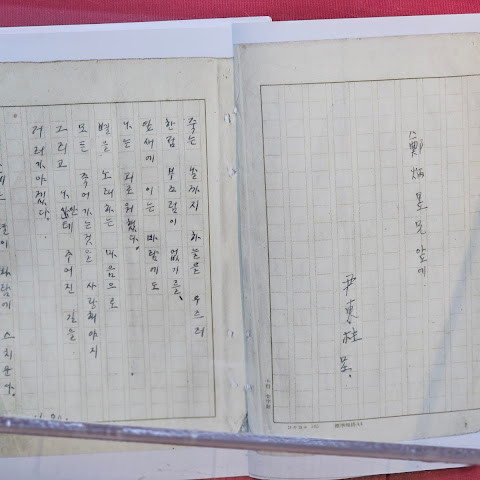 鄭炳昱兄앞에
尹東柱 呈.
죽는 날까지 하늘을 우르러
한점 부끄럼이 없기를,
잎새에 이는 바람에도
나는 괴로워했다.
별을 노래하는 마음으로
모든 죽어가는것을 사랑해야지
그리고 나안테 주어진 길을
거러가야겠다.
별이 바람에 스치운다.